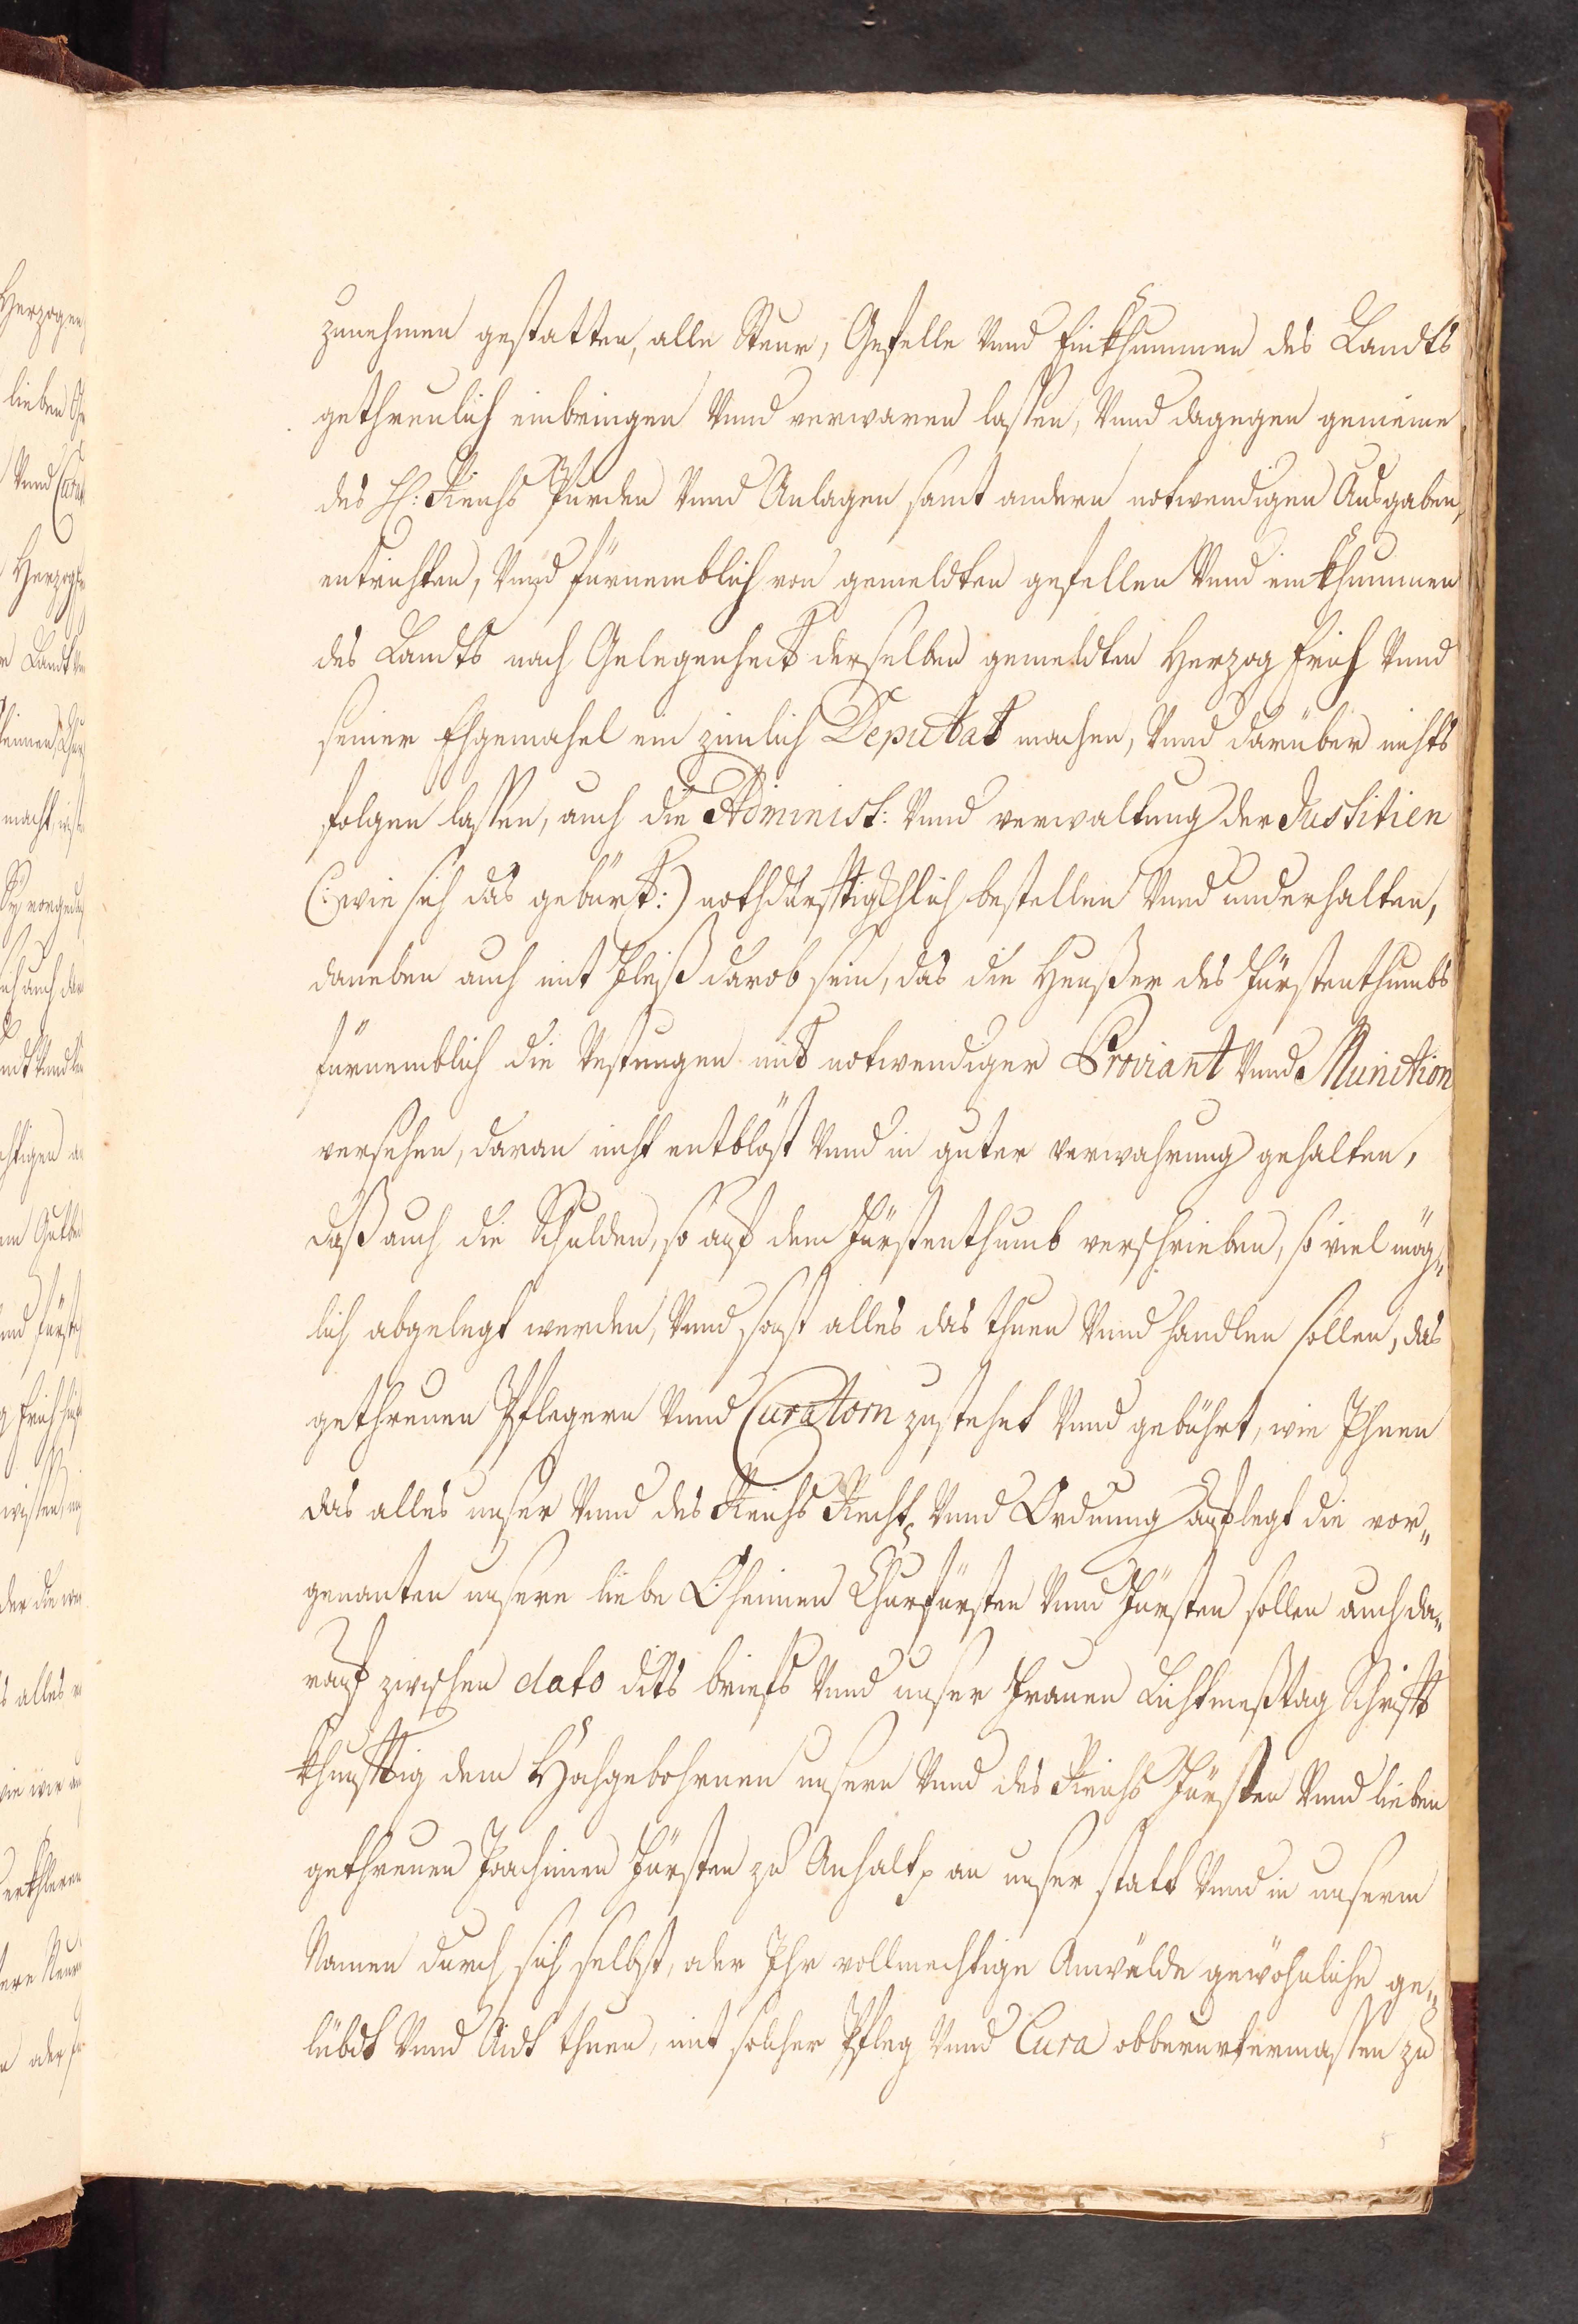 zunehmen gestatten, alle Steur, Gefelle Vnnd Einkhummen des Landts
gethreulich einbringen Vnnd verwaren lassen, Vnnd dagegen gemeine
des H: Reichs Purden Vnnd Anlagen samt andern notwendigen Ausgaben,
entrichten, Vnnd fürnemblich von gemeldten gefellen Vnnd einkhummen
des Landts nach Gelegenheit derselben gemeldten Herzog Erich Vnnd
seiner Ehgemahel ein zimlich Deputat machen, Vnnd darüber nichts
folgen lassen, auch die Administ: Vnnd verwaltung der Justitien
(: wie sich das gebürt :) nothdurfftigkhlich bestellen Vnnd underhalten,
daneben auch mit Fleiß darob sein, das die Heußer des Fürstenthumbs
fürnemblich die Vestungen mit notwendiger Proviant Vnnd Munition
versehen, daran nicht entblöst Vnnd in guter verwahrung gehalten,
daß auch die Schulden, so auf dem Fürstenthumb verschrieben, so viel mög„
lich abgelegt werden, Vnnd sonst alles das thuen Vnnd handlen sollen, das
gethreuen Pflegern Vnnd Curatorn zustehet Vnnd gebührt, wie Ihnen
das alles unser Vnnd des Reichs Recht Vnnd Ordnung auflegt die vor„
genanten unsere liebe Oheimen Churfürsten Vnnd Fürsten sollen auch da„
rauf zwischen dato dits briefs Vnnd unser Frauen Lichtmeßtag Schrifft
khunfftig dem Hochgebohrnen unsern Vnnd des Reichs Fürsten Vnnd lieben
gethreuen Joachimen Fürsten zu Anhalt an unser statt Vnnd in unserm
Namen durch sich selbst, oder Ihr vollmechtige Anwälde gewöhnliche ge„
lübdt Vnnd Aidt thuen, mit solcher Pfleg Vnnd Cura obberurtermassen zu